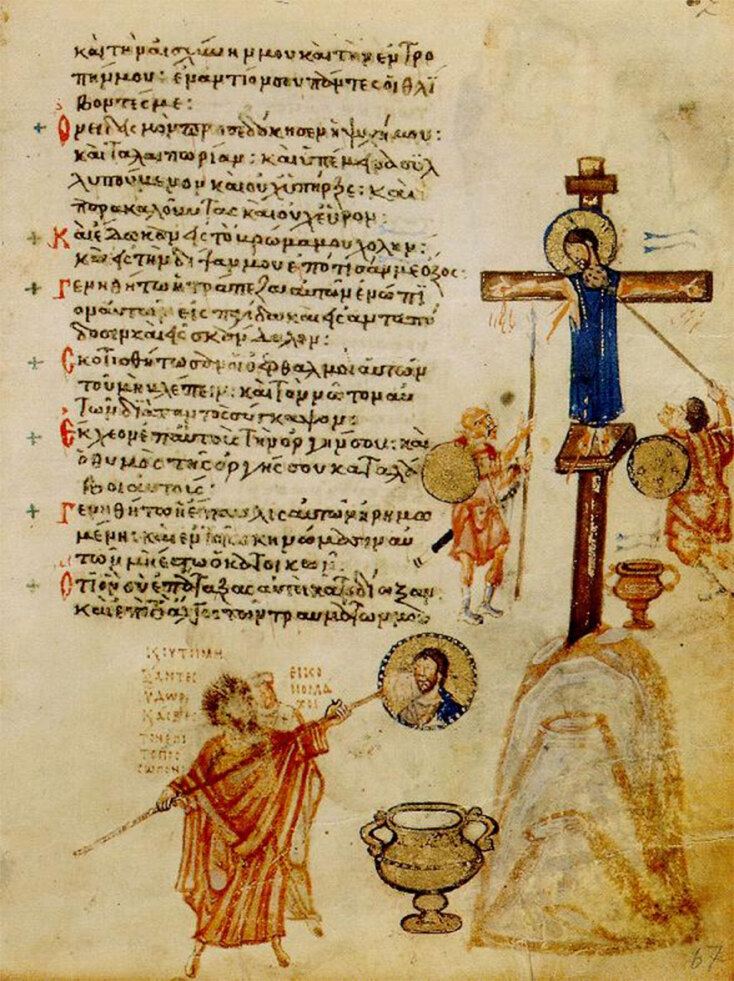 καὶ τὴν αἰσχύνην μου καὶ τὴν ἐντρο
πήν μου: ἐναντίον σου πάντες οἱ θλί
βοντές με:
Ὀνειδισμὸν προσεδόκησεν ἡ ψυχή μου:
καὶ ταλαιπωρίαν: καὶ ὑπέμεινα συλ
λυπούμενον καὶ οὐχ ὑπῆρξε: καὶ
παρακαλοῦντας καὶ οὐχ εὗρον:
Καὶ ἔδωκαν εἰς τὸ βρῶμα μου χολήν:
καὶ εἰς τὴν δίψαν μου ἐπότισάν με ὄξος:
Γενηθήτω ἡ τράπεζα αὐτῶν ἐνώπι
ον αὐτῶν εἰς παγίδα καὶ εἰς ἀνταπό
δοσιν καὶ εἰς σκάνδαλον:
Σκοτισθήτωσαν οἱ ὀφθαλμοὶ αὐτῶν
τοῦ μὴ βλέπειν: καὶ τὸν νῶτον αὐ
τῶν διὰ παντὸς σύγκαμψον:
Ἔκχεον ἐπ' αὐτοὺς τὴν ὀργήν σου: καὶ
ὁ θυμὸς τῆς ὀργῆς σου καταλά
βοι αὐτούς:
Γενηθήτω ἡ ἔπαυλις αὐτῶν ἠρημω
μένη: καὶ ἐν τοῖς σκηνώμασιν αὐ
τῶν μὴ ἔστω ὁ κατοικῶν:
Ὅτι ὃν σὺ ἐπάταξας αὐτοὶ κατεδίωξαν
καὶ ἐπὶ τὸ ἄλγος τῶν τραυμάτων μου
ΥΔΩΡ
ΕΙΚΟ
ΝΟΜΑ
ΧΟΙ
67